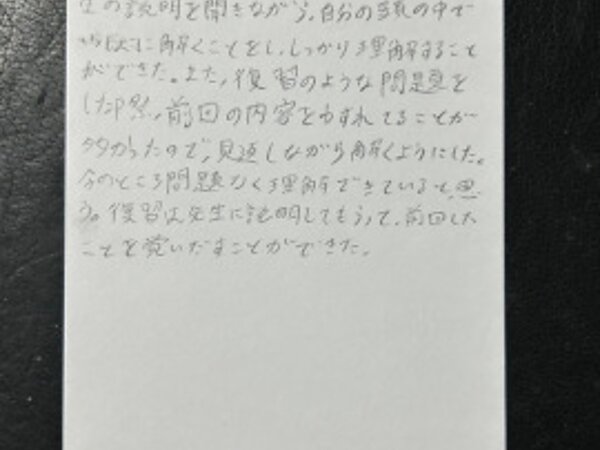 の説明を聞きながら,自分の
に解くことをし,しっかり理解すること
ができた。また,復習のような問題を
した際,前回の内容をわすれてることが
多かったので,見返しながら解くようにした。
今のところ問題なく理解できていると思
う。復習は先生に説明してもらって,前回した
ことを覚いだすことができた。